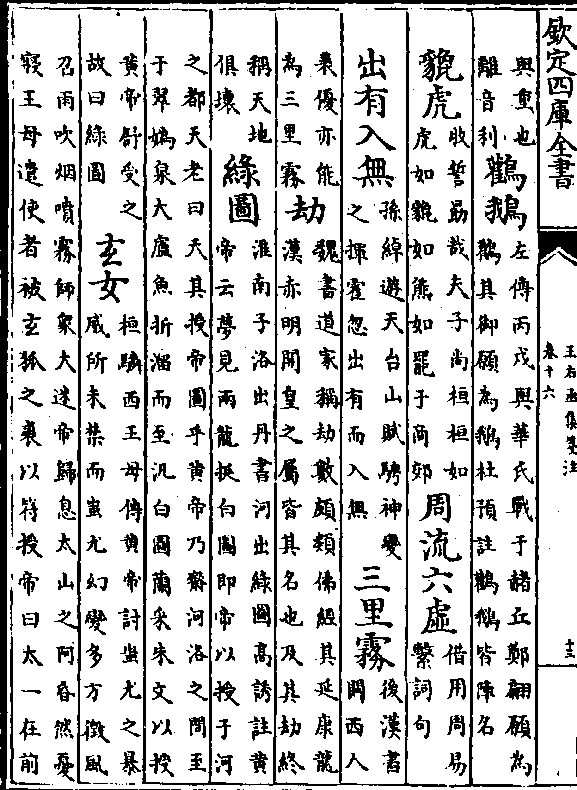 欽定四庫全書
王右丞集箋注
卷十六
十三
與重也
離音利
鸛鵝
左傳丙戌與華氏戰于諸丘鄭翩願為
鸛其御願為鵝杜預註鸛鵝皆陣名
貔虎
牧誓勗哉夫子尚桓桓如
虎如貔如熊如羆于商郊
周流六虛
借用周易
繫詞句
出有入無
孫綽遊天台山賦騁神變
之揮霍忽出有而入無
三里霧
後漢書
關西人
裴優亦能
為三里霧
劫
魏書道家稱劫數頗類佛經其延康龍
漢赤明開皇之屬皆其名也及其劫終
稱天地
俱壞
綠圖
淮南子洛出丹書河出綠圖高誘註黄
帝云夢見兩龍挺白圖即帝以授于河
之都天老曰天其授帝圖乎黄帝乃齋河洛之間至
于翠媯泉大盧魚折溜而至汎白圖蘭采朱文以授
黄帝舒受之
故曰綠圖
玄女
桓驎西王母傳黄帝討蚩尤之暴
威所未禁而蚩尤幻變多方徵風
召雨吹烟噴霧師衆大迷帝歸息太山之阿昏然憂
寢王母遣使者被玄狐之裘以符授帝曰太一在前